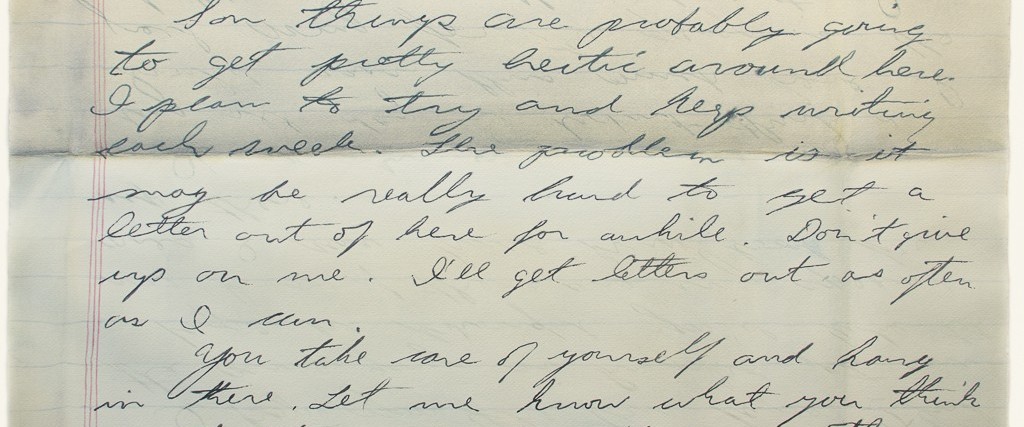 Son things are probably going
to get pretty hectic around here.
I plan to try and keep writing
each week. The problem is it
may be really hard to get a
letter out of here for awhile. Don't give
up on me. I'll get letters out as often
as I can.
You take care of yourself and hang
in there. Let me know what you think